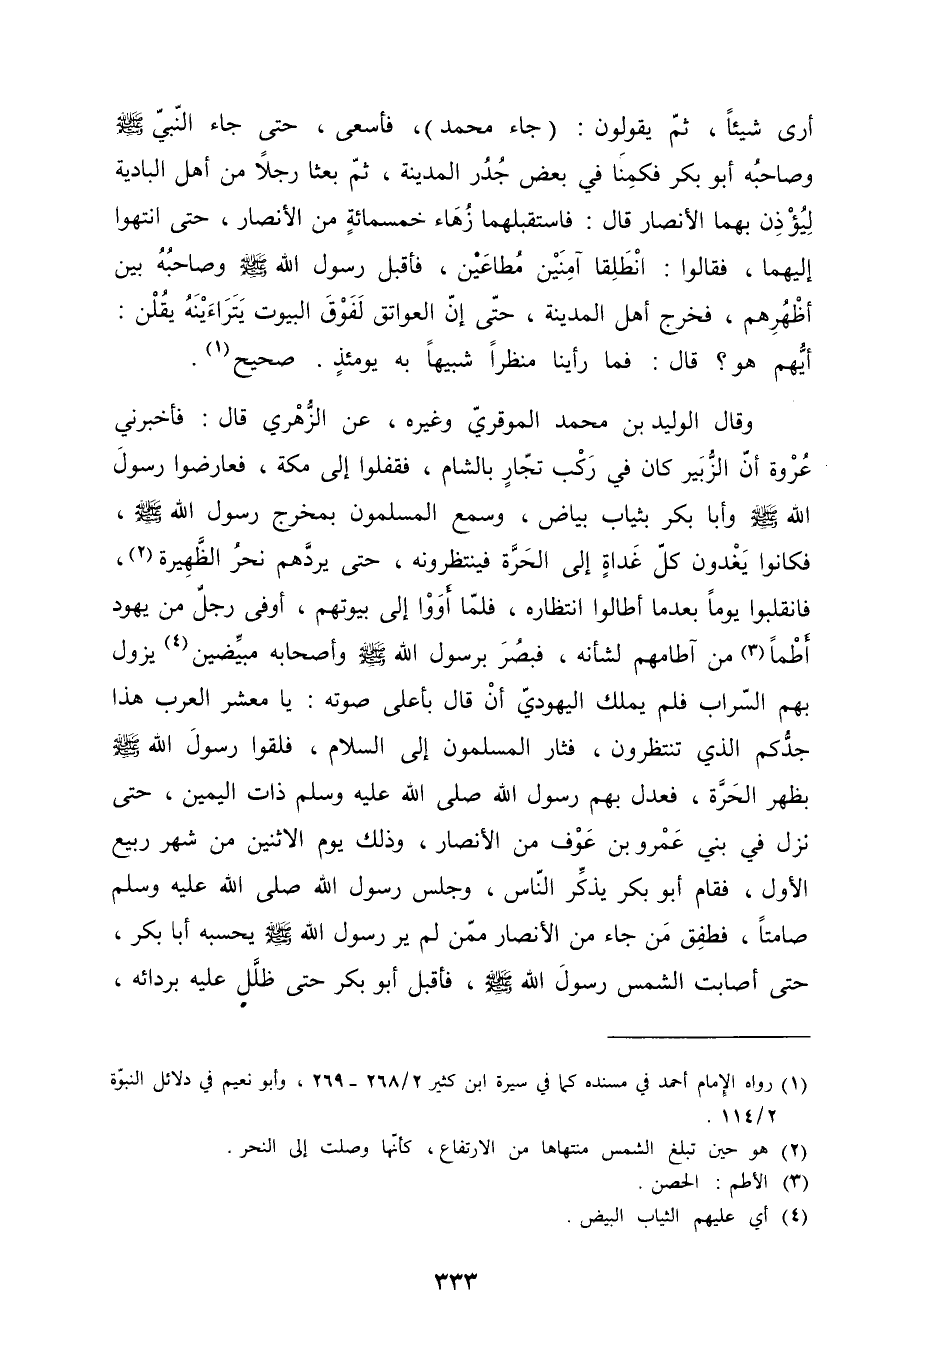 أرى شيئاً ، ثمّ يقولون : ( جاء محمد )، فأسعى ، حتى جاء النّبيّ ﷺ
وصاحبُه أبو بكر فكمِنَا في بعض جُدُر المدينة ، ثمّ بعثا رجلاً من أهل البادية
لِيُؤْذِن بهما الأنصار قال : فاستقبلهما زُهَاء خمسمائةٍ من الأنصار ، حتى انتهوا
إليهما ، فقالوا : انْطَلِقا آمِنَيْن مُطاعَيْن ، فأقبل رسول الله ﷺ وصاحبُهُ بين
أظْهُرِهم ، فخرج أهل المدينة ، حتّى إنّ العواتق لَفَوْقَ البيوت يَتَرَاءَيْنَهُ يقُلْن :
أيُّهم هو ؟ قال : فما رأينا منظراً شبيهاً به يومئذٍ . صحيح(١) .
وقال الوليد بن محمد الموقريّ وغيره ، عن الزُّهْري قال : فأخبرني
عُرْوة أنّ الزُّبَير كان في رَكْب تجّارٍ بالشام ، فقفلوا إلى مكة ، فعارضوا رسولَ
الله ﷺ وأبا بكر بثياب بياض ، وسمع المسلمون بمخرج رسول الله ﷺ ،
فكانوا يَغْدون كلّ غَداةٍ إلى الحَرَّة فينتظرونه ، حتى يردَّهم نحرُ الظَّهِيرة(٢)،
فانقلبوا يوماً بعدما أطالوا انتظاره ، فلمّا أَوَوْا إلى بيوتهم ، أوفى رجلٌ من يهود
أُطُماً(٣) من آطامهم لشأنه ، فبصُرَ برسول الله ﷺ وأصحابه مبيِّضين(٤) يزول
بهم السّراب فلم يملك اليهوديّ أنْ قال بأعلى صوته : يا معشر العرب هذا
جدُّكم الذي تنتظرون ، فثار المسلمون إلى السلام ، فلقوا رسولَ الله ﷺ
بظهر الحَرَّة ، فعدل بهم رسول الله صلى الله عليه وسلم ذات اليمين ، حتى
نزل في بني عَمْرو بن عَوْف من الأنصار ، وذلك يوم الاثنين من شهر ربيع
الأول ، فقام أبو بكر يذكِّر النّاس ، وجلس رسول الله صلى الله عليه وسلم
صامتاً ، فطفِق مَن جاء من الأنصار ممّن لم ير رسول الله ﷺ يحسبه أبا بكر ،
حتى أصابت الشمس رسولَ الله ﷺ ، فأقبل أبو بكر حتى ظلَّل عليه بردائه ،
(١) رواه الإمام أحمد في مسنده كما في سيرة ابن كثير ٢/‏٢٦٨ ـ ٢٦٩ ، وأبو نعيم في دلائل النبوّة
٢/‏١١٤ .
(٢) هو حين تبلغ الشمس منتهاها من الارتفاع ، كأنّها وصلت إلى النحر .
(٣) الأطم : الحصن .
(٤) أي عليهم الثياب البيض .
٣٣٣